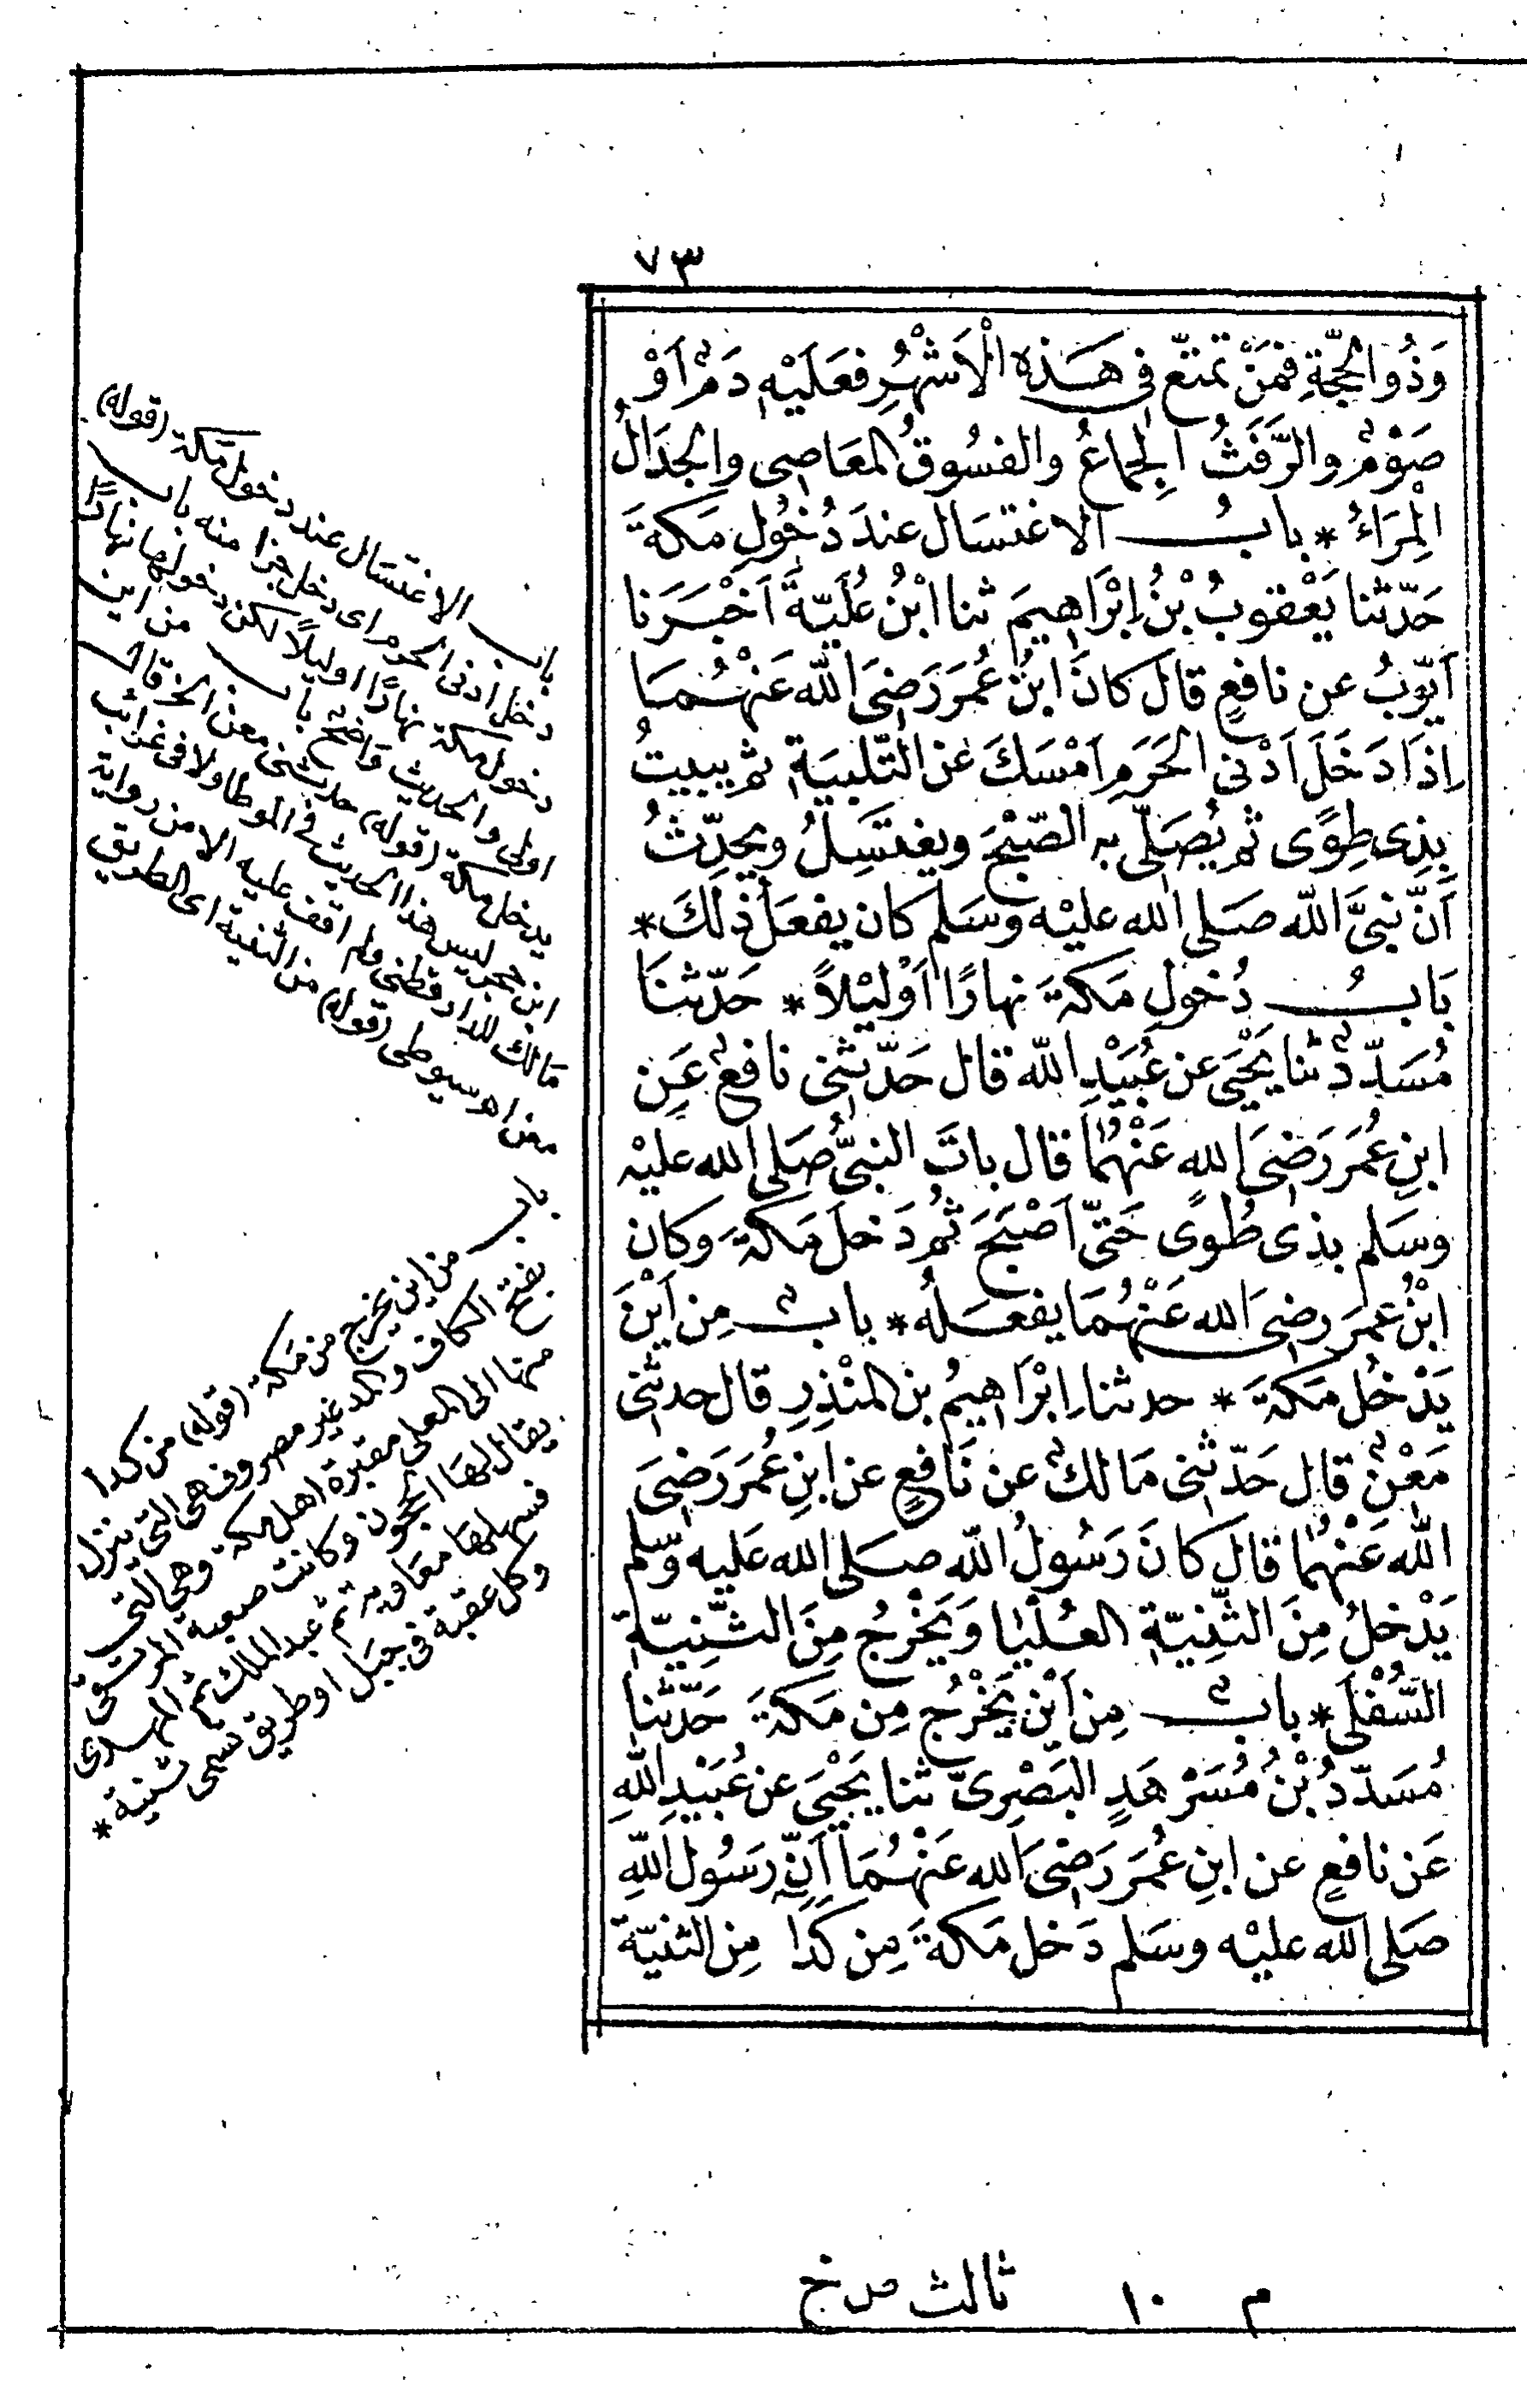 ٧٣
وَذُو الحِجّةِ فمَنْ تمتّعَ فى هَذِه الْاَشْهُرِ فعَلَيْهِ دَمٌ اَوْ
صَوْمٌ والرَّفَثُ الِجماعُ والفسُوقُ المعَاصِى والجدَالُ
الْمِرَاءُ * بابُ الاغتسَال عندَ دُخُولِ مَكةَ
حَدّثنا يَعْقوبُ بْنُ اِبْرَاهِيمَ ثنا ابْنُ عُلَيّةَ اَخْبَرَنا
اَيّوبُ عن نافعٍ قال كانَ ابنُ عُمَرَ رَضِىَ اللّٰه عَنْهُمَا
اِذَا دَخَلَ اَدْنى الحَرَمِ اَمْسَكَ عَن التّلبيَةِ ثم يبيتُ
بِذِى طِوًى ثم يُصَلّى بهِ الصّبْحَ ويغتَسِلُ ويحدِّثُ
اَنّ نبىَّ اللّٰه صَلى الله عليْه وسَلم كان يفعَلُ ذلكَ *
بَابُ دُخولِ مَكةَ نهارًا اَوْليْلاً * حَدّثنَا
مُسَدّدٌ ثنا يَحْيَى عن عُبَيْدِ اللّٰه قال حَدّثنى نافعٌ عَن
ابنِ عُمَرَ رَضِىَ الله عَنْهُمَا قال باتَ النبىُّ صَلى الله عليْه
وسَلم بذِى طُوًى حَتّى اَصْبَحَ ثُم دَخلَ مَكةَ وكان
ابْنُ عمَرَ رضِىَ الله عَنْهُمَا يفعَلُه * بابٌ مِن اَيْنَ
يَدْخُل مَكةَ * حدثنا اِبْرَاهِيمُ بن المنْذِرِ قال حدثنى
مَعْنٌ قال حَدّثنى مَالكٌ عن نَافعٍ عن ابنِ عُمَرَ رَضِىَ
اللّٰه عَنْهُمَا قال كانَ رَسُولُ اللّٰه صَلى الله عَليه وسَّلم
يَدْخلُ مِنَ الثّنِيّةِ العُلْيَا وَيَخْرُج مِنَ الثّنِيّةِ
السُّفْلَى * بابٌ مِن اَيْن يَخْرُج مِن مَكةَ حَدّثنا
مُسَدّدُ بْنُ مُسَرْهَدٍ البَصْرِىّ ثنا يَحْيَى عن عُبَيْدِ اللّٰهِ
عَن نافعٍ عن ابنِ عُمَرَ رَضِىَ الله عَنْهُمَا اَنّ رَسُول اللّٰهِ
صَلى الله عليْه وسَلم دَخل مَكةَ مِن كَدَا مِن الثنيّة
باب الاغتسَال عند دخول مَكة (قوله)
دخل أدنى الحرم اى دخل جزا منه باب
دخول مكة نهارًا اوليلاً لكن دخولها نهارًا
اولى والحديث واضح باب من اين
يدخل مكة (قوله) حدثنى معن الخ قال
ابن حجر ليس هذا الحديث فى الموطا ولا فى غرائب
مَالك للدارقطنى ولم اقف عليه الا من رواية
معن اه سيوطى (قوله) من الثنية اى الطريق
باب من اين يخرج من مَكة (قوله) من كدا
بفتح الكاف والمد غير مصروف هى التى ينزل
منها الى المعلى مقبرة اهل مكة وهى التى
يقال لهَا الحجون وكانت صعبة المرتقى
فسهلهَا معَاوية ثم عبد الملك ثم المهدى
وكل عقبة فى جبَل او طريق تسمى ثنية *
م ١٠ ثالث من خ